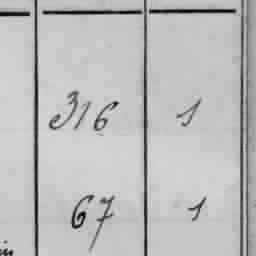 316 1
67 1